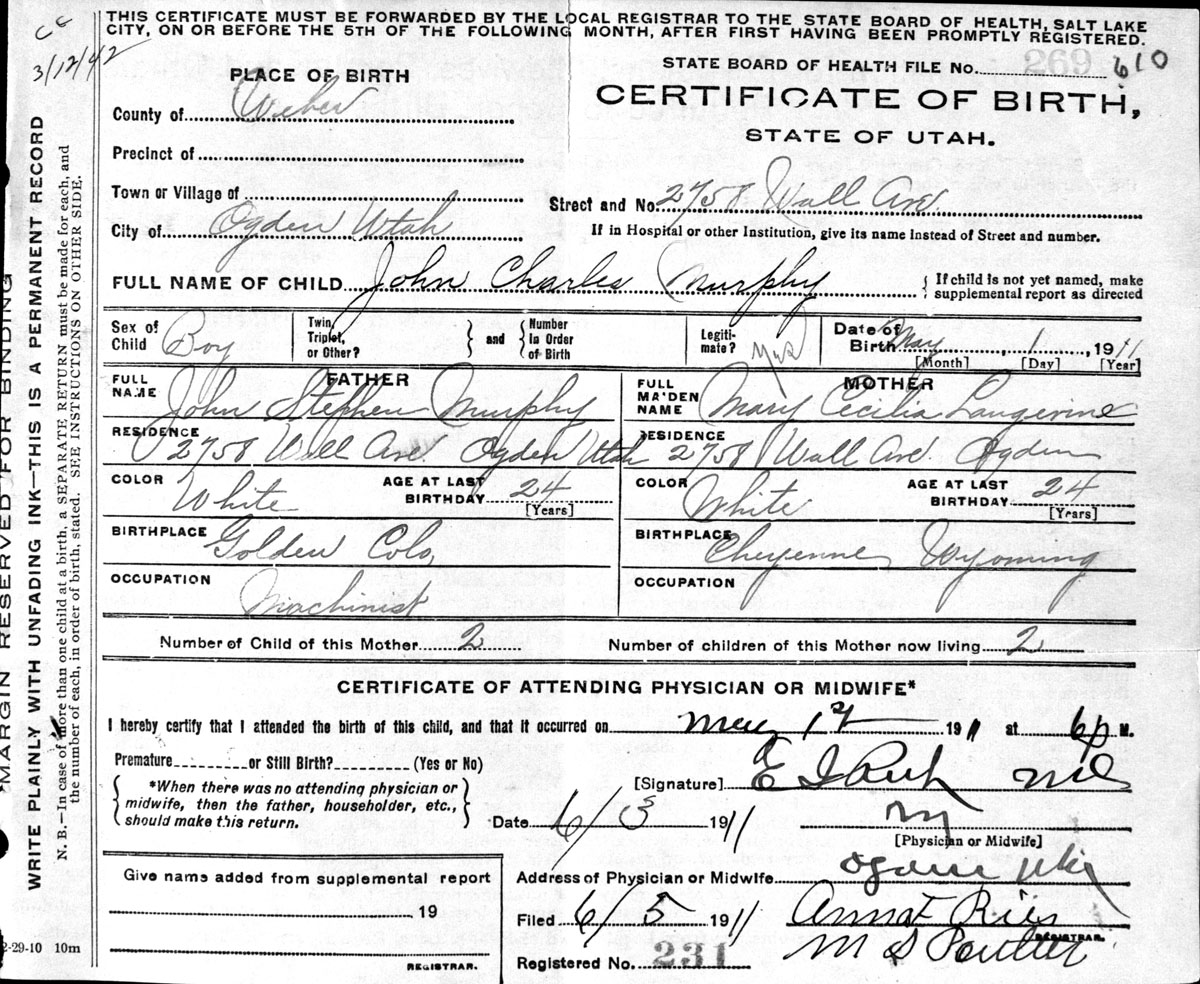 CC
3/12/42
THIS CERTIFICATE MUST BE FORWARDED BY THE LOCAL REGISTRAR TO THE STATE BOARD OF HEALTH, SALT LAKE
CITY, ON OR BEFORE THE 5TH OF THE FOLLOWING MONTH, AFTER FIRST HAVING BEEN PROMPTLY REGISTERED.
MARGIN RESERVED FOR BINDING
WRITE PLAINLY WITH UNFADING INK—THIS IS A PERMANENT RECORD
N. B.—In case of more than one child at a birth, a SEPARATE RETURN must be made for each, and
the number of each, in order of birth, stated. SEE INSTRUCTIONS ON OTHER SIDE.
PLACE OF BIRTH
STATE BOARD OF HEALTH FILE No. 269 610
CERTIFICATE OF BIRTH,
STATE OF UTAH.
County of Weber
Precinct of
Town or Village of
Street and No. 2758 Wall Ave.
City of Ogden Utah
If in Hospital or other Institution, give its name instead of Street and number.
FULL NAME OF CHILD John Charles Murphy
{ If child is not yet named, make
supplemental report as directed
Sex of Child Boy
Twin, Triplet, or Other? } and { Number in Order of Birth
Legitimate?
Date of Birth May, 1, 1911
[Month] [Day] [Year]
FATHER
MOTHER
FULL NAME John Stephen Murphy
FULL MAIDEN NAME Mary Cecilia Langevine
RESIDENCE 2758 Wall Ave. Ogden Utah
RESIDENCE 2758 Wall Ave. Ogden
COLOR White AGE AT LAST BIRTHDAY 24 [Years]
COLOR White AGE AT LAST BIRTHDAY 24 [Years]
BIRTHPLACE Golden Colo,
BIRTHPLACE Cheyenne Wyoming
OCCUPATION Machinist
OCCUPATION
Number of Child of this Mother 2
Number of children of this Mother now living 2
CERTIFICATE OF ATTENDING PHYSICIAN OR MIDWIFE*
I hereby certify that I attended the birth of this child, and that it occurred on May 1st 1911 at 6 p M.
Premature or Still Birth? (Yes or No)
*When there was no attending physician or
midwife, then the father, householder, etc.,
should make this return.
[Signature] E I
Date 6/3 1911
[Physician or Midwife]
Address of Physician or Midwife Ogden
Give name added from supplemental report
19
REGISTRAR.
Filed 6/5 1911
Registered No. 231
Anna F
M S
REGISTRAR.
2-29-10 10m